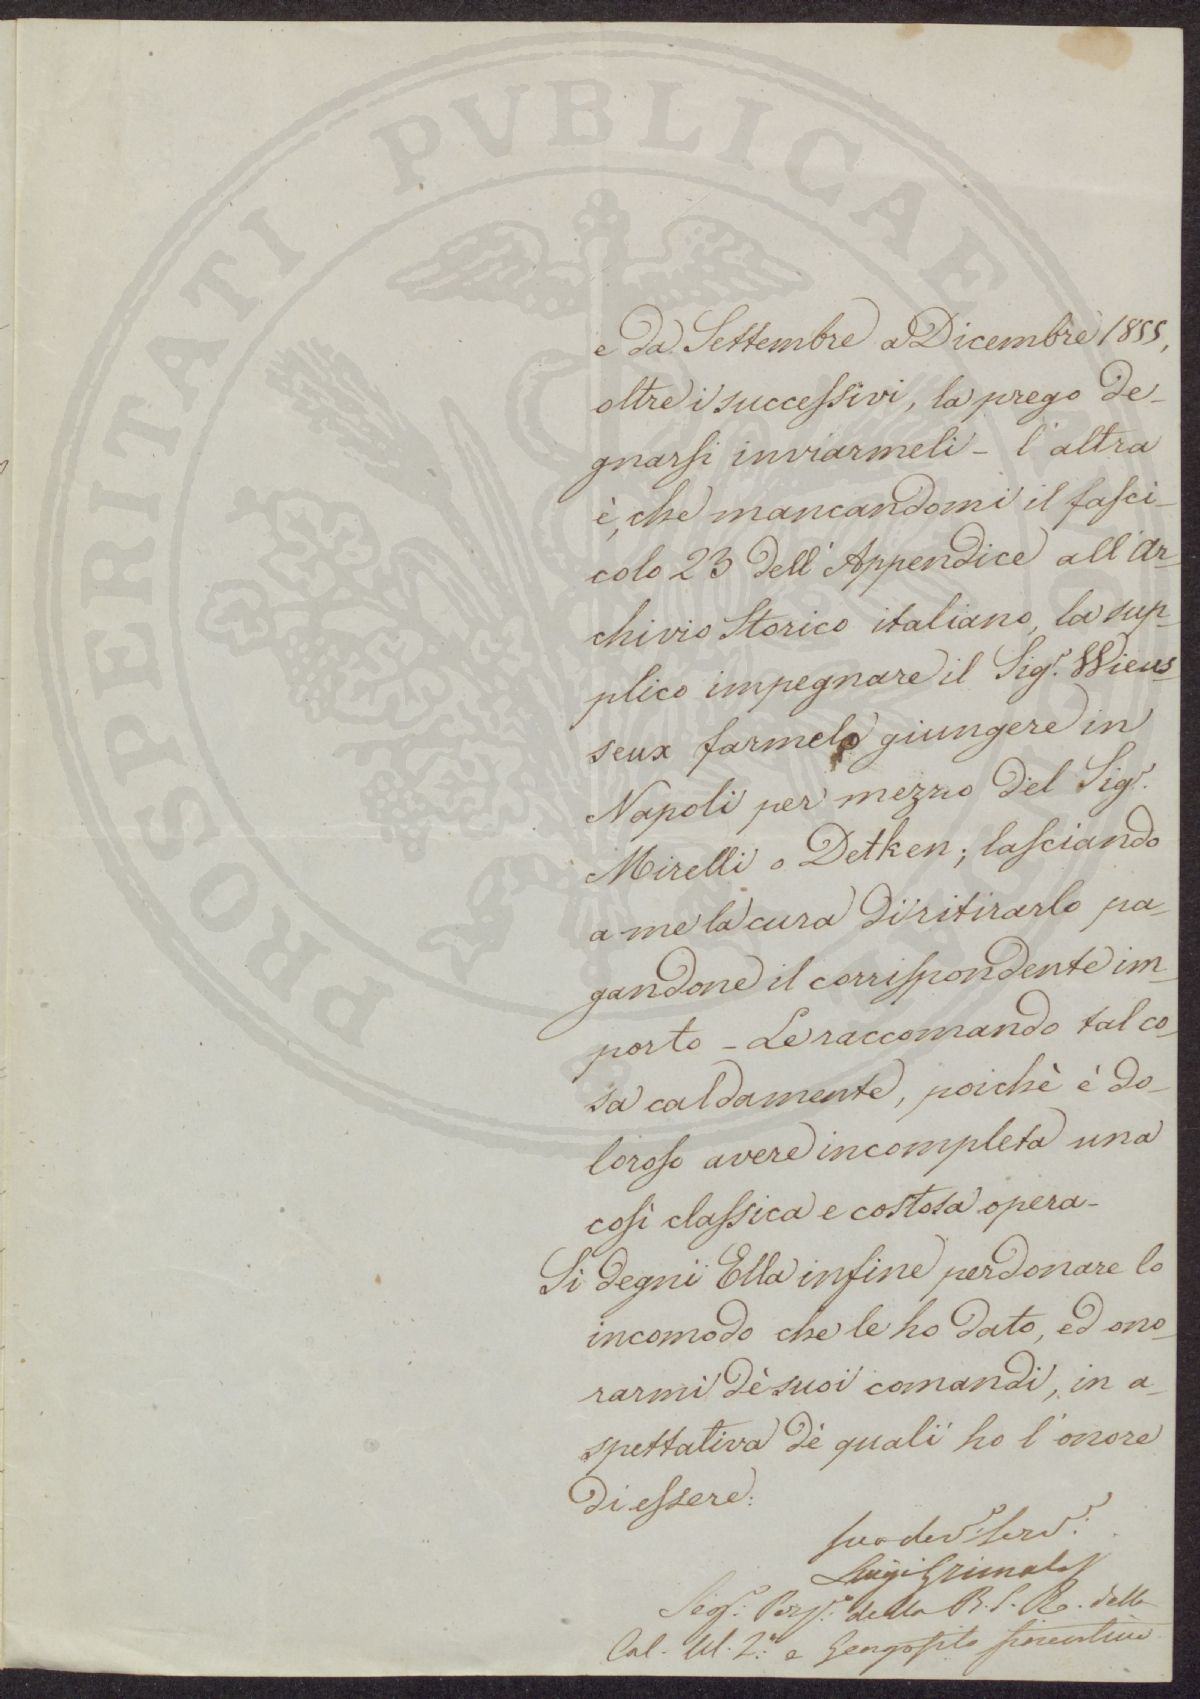 PROSPERITATI PVBLICAE
e da Settembre a Dicembre 1855,
oltre i successivi, la prego de-
gnarsi inviarmeli - l'altra
è, che mancandomi il fasci-
colo 23 dell'Appendice all'Ar-
chivio Storico italiano, la sup-
plico impegnare il Sigr. Wieus-
seux farmelo giungere in
Napoli per mezzo del Sigr.
Mirelli o Detken; lasciando
a me la cura di ritirarlo pa-
gandone il corrispondente im-
porto - Le raccomando tal co-
sa caldamente, poichè è do-
loroso avere incompleta una
così classica e costosa opera-
Si degni Ella infine perdonare lo
incomodo che le ho dato, ed ono-
rarmi dè suoi comandi, in a-
spettativa dè quali ho l'onore
di essere:
Suo devr. servr.
Luigi Grimaldi
Segr. Perp. della R. S. E. della
Cal. Ul. 2a. e Georgofilo fiorentino